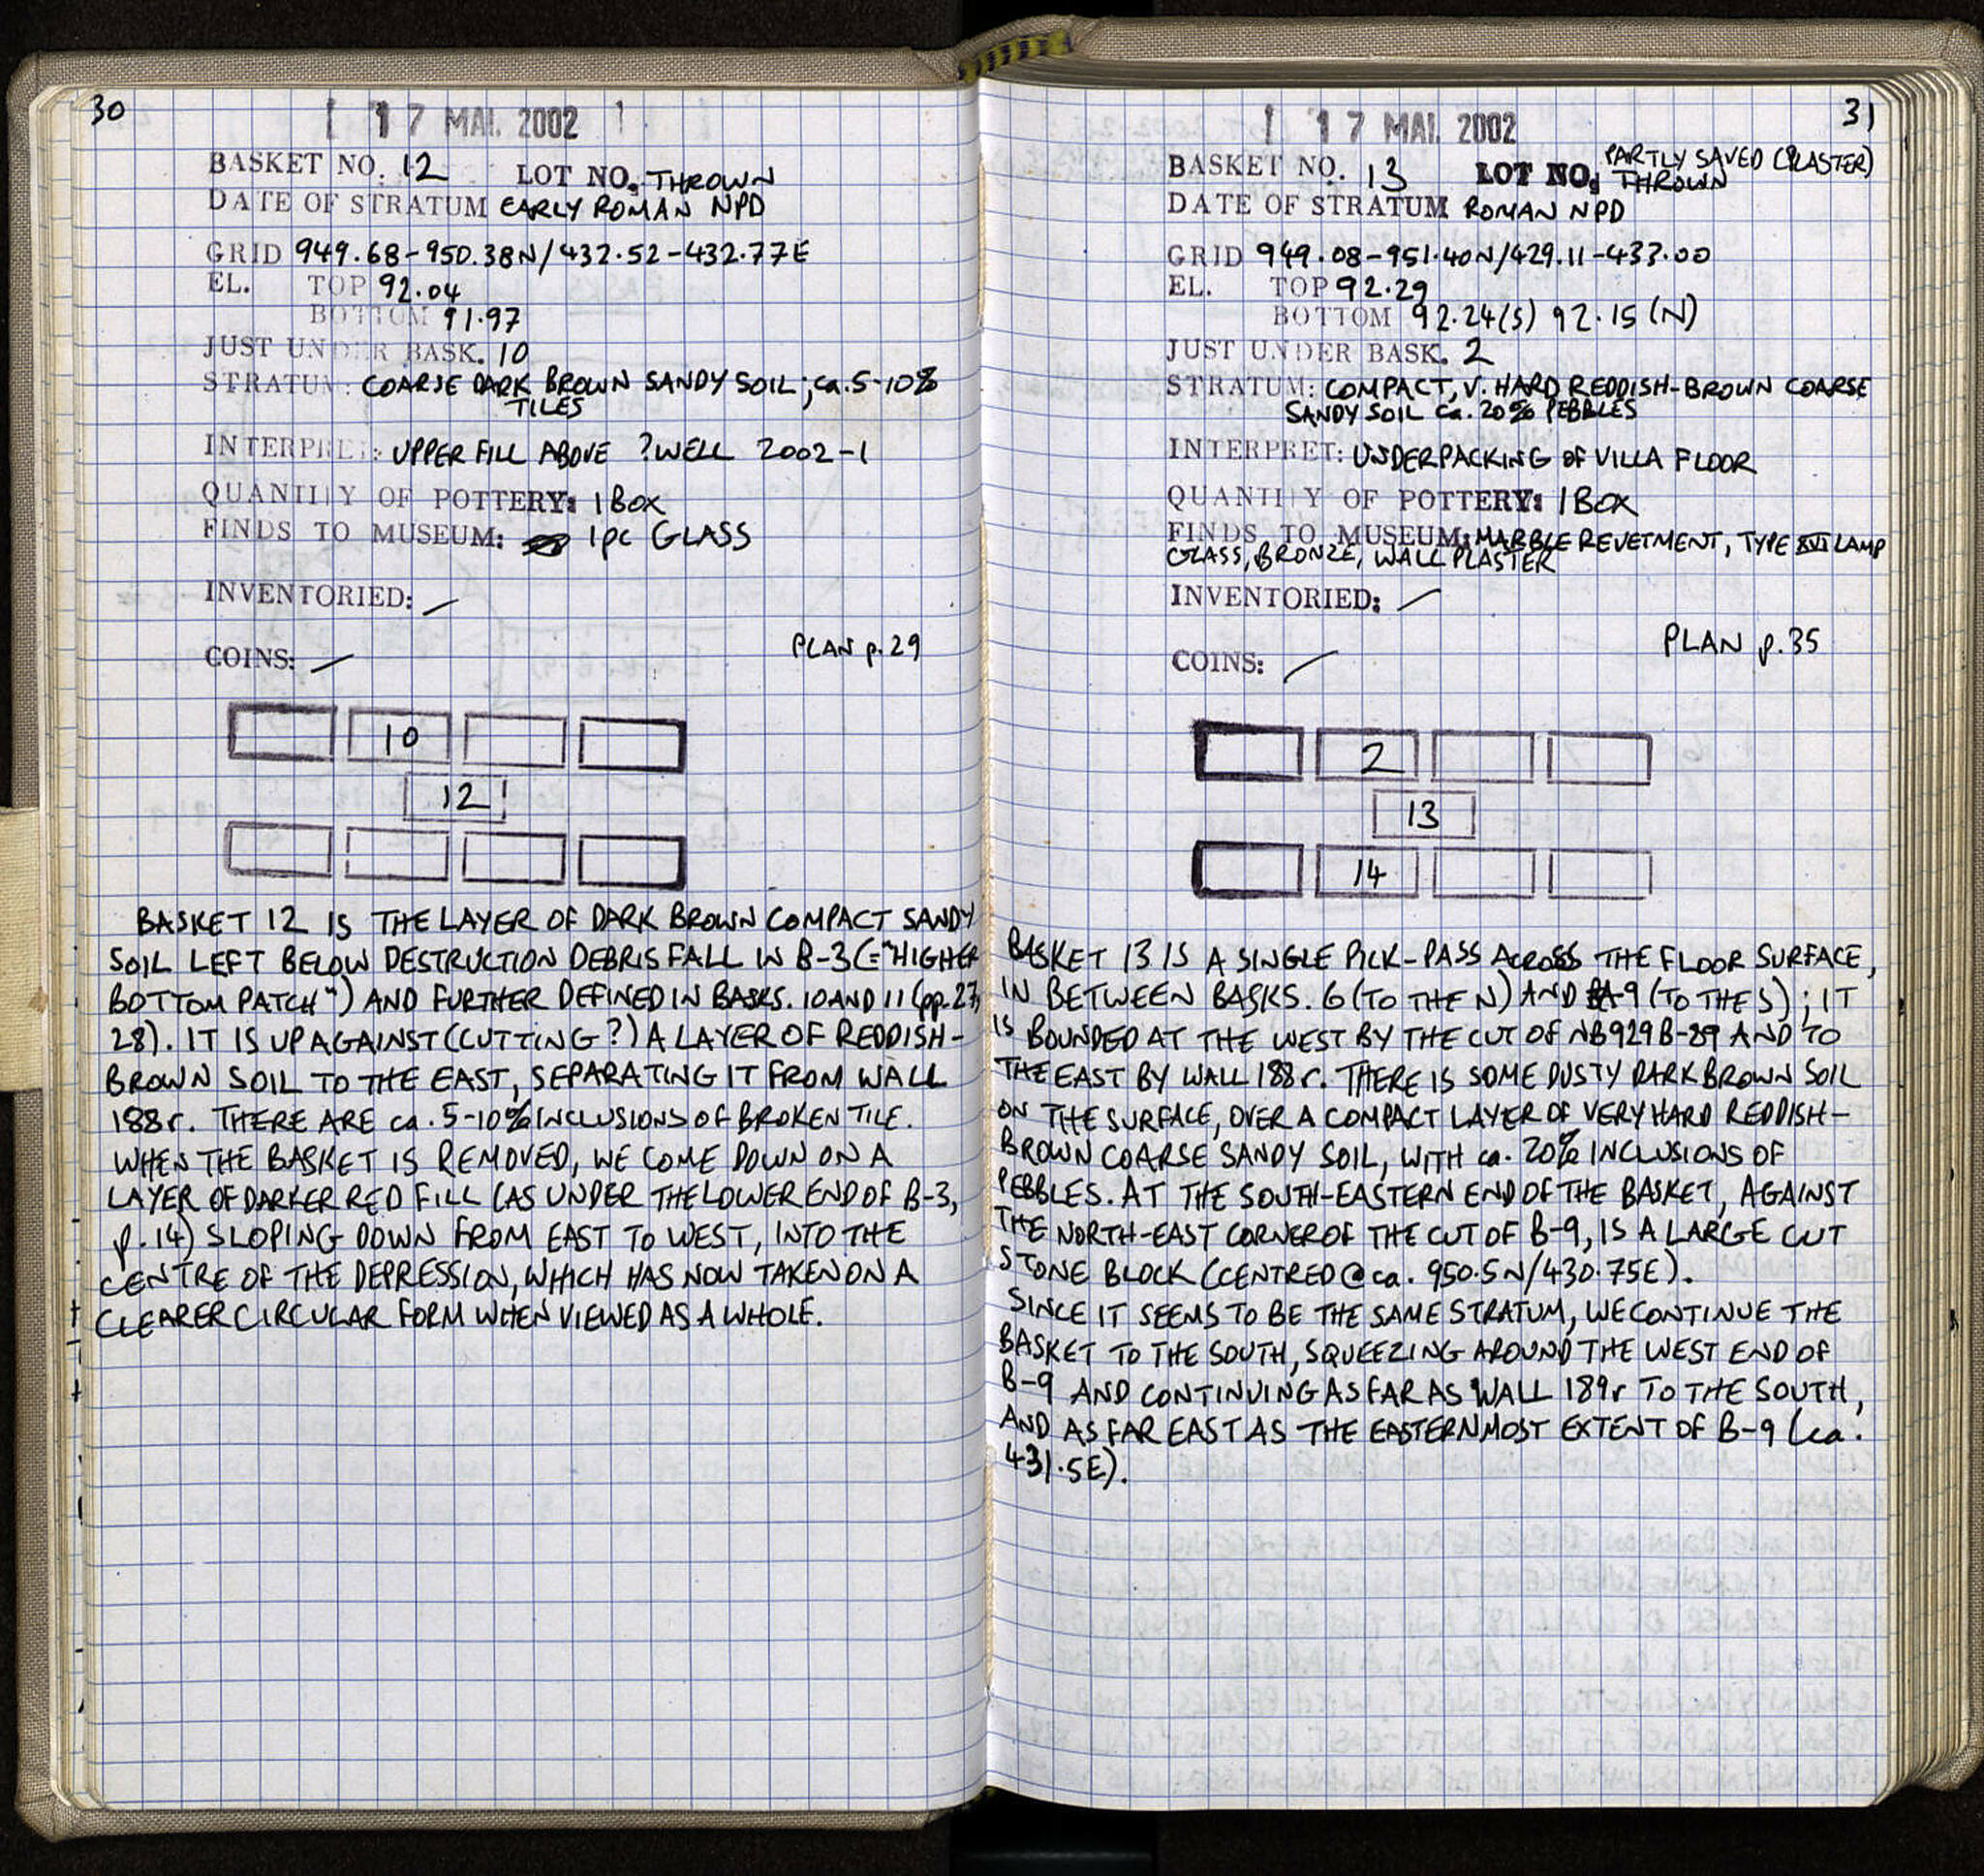 30
17 MAI. 2002
BASKET NO. 12 LOT NO. THROWN
DATE OF STRATUM EARLY ROMAN NPD
GRID 949.68-950.38N/432.52-432.77E
EL. TOP 92.04
BOTTOM 91.97
JUST UNDER BASK. 10
STRATUM: COARSE DARK BROWN SANDY SOIL; ca. 5-10%
TILES
INTERPRET: UPPER FILL ABOVE ?WELL 2002-1
QUANTITY OF POTTERY: 1 BOX
FINDS TO MUSEUM: 1pc GLASS
INVENTORIED: —
COINS: —
PLAN p. 29
10
12
BASKET 12 IS THE LAYER OF DARK BROWN COMPACT SANDY
SOIL LEFT BELOW DESTRUCTION DEBRIS FALL IN B-3 (="HIGHER
BOTTOM PATCH") AND FURTHER DEFINED IN BASKS. 10 AND 11 (pp. 27,
28). IT IS UP AGAINST (CUTTING?) A LAYER OF REDDISH-
BROWN SOIL TO THE EAST, SEPARATING IT FROM WALL
188r. THERE ARE ca. 5-10% INCLUSIONS OF BROKEN TILE.
WHEN THE BASKET IS REMOVED, WE COME DOWN ON A
LAYER OF DARKER RED FILL (AS UNDER THE LOWER END OF B-3,
p. 14) SLOPING DOWN FROM EAST TO WEST, INTO THE
CENTRE OF THE DEPRESSION, WHICH HAS NOW TAKEN ON A
CLEARER CIRCULAR FORM WHEN VIEWED AS A WHOLE.
31
17 MAI. 2002
PARTLY SAVED (PLASTER)
BASKET NO. 13 LOT NO. THROWN
DATE OF STRATUM ROMAN NPD
GRID 949.08-951.40N/429.11-433.00
EL. TOP 92.29
BOTTOM 92.24(S) 92.15 (N)
JUST UNDER BASK. 2
STRATUM: COMPACT, V. HARD REDDISH-BROWN COARSE
SANDY SOIL ca. 20% PEBBLES
INTERPRET: UNDERPACKING OF VILLA FLOOR
QUANTITY OF POTTERY: 1 BOX
FINDS TO MUSEUM: MARBLE REVETMENT, TYPE XVI LAMP
GLASS, BRONZE, WALL PLASTER
INVENTORIED: —
COINS: —
PLAN p. 35
2
13
14
BASKET 13 IS A SINGLE PICK-PASS ACROSS THE FLOOR SURFACE,
IN BETWEEN BASKS. 6 (TO THE N) AND 9 (TO THE S); IT
IS BOUNDED AT THE WEST BY THE CUT OF NB929 B-89 AND TO
THE EAST BY WALL 188r. THERE IS SOME DUSTY DARK BROWN SOIL
ON THE SURFACE, OVER A COMPACT LAYER OF VERY HARD REDDISH-
BROWN COARSE SANDY SOIL, WITH ca. 20% INCLUSIONS OF
PEBBLES. AT THE SOUTH-EASTERN END OF THE BASKET, AGAINST
THE NORTH-EAST CORNER OF THE CUT OF B-9, IS A LARGE CUT
STONE BLOCK (CENTRED @ ca. 950.5N/430.75E).
SINCE IT SEEMS TO BE THE SAME STRATUM, WE CONTINUE THE
BASKET TO THE SOUTH, SQUEEZING AROUND THE WEST END OF
B-9 AND CONTINUING AS FAR AS WALL 189r TO THE SOUTH,
AND AS FAR EAST AS THE EASTERNMOST EXTENT OF B-9 (ca.
431.5E).